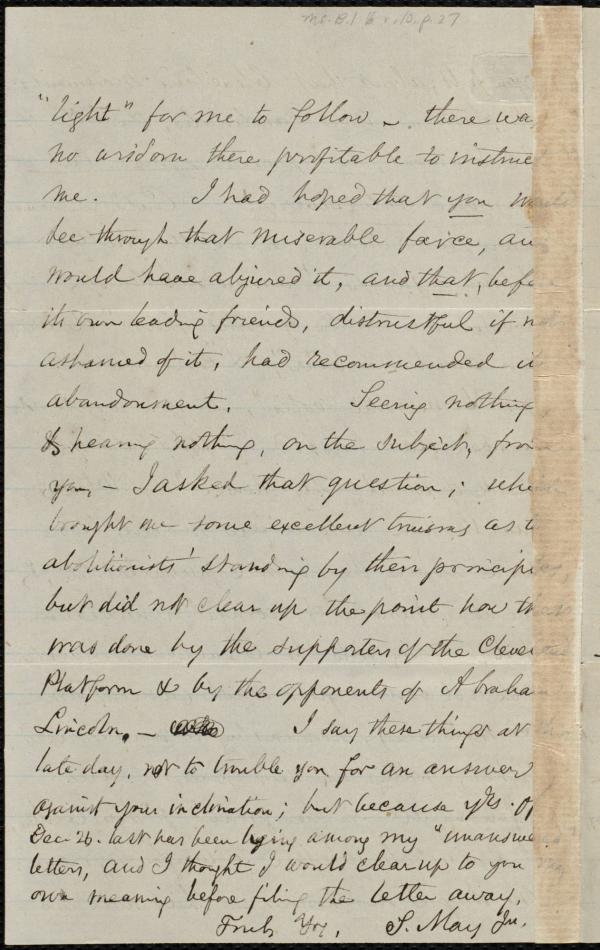 Ms.B.1.6 v.10.p.27
"light" for me to follow – there wa
no wisdom there profitable to instruc
me. I had hoped that you
see through that miserable farce, an
would have abjured it, and that, befo
its own leading friends, distrustful if no
ashamed of it, had recommended it
abandonment. Seeing nothing
& hearing nothing, on the subject, from
you, – I asked that question; whi
brought me some excellent truisms as t
abolitionists' standing by their principl
but did not clear up the point how th
was done by the supporters of the Cleve
Platform & by the opponents of Abraha
Lincoln. – I say these things at
late day, not to trouble you for an answer
against your inclination; but because yrs. of
Dec. 26. last has been lying among my "unanswe
letters, and I thought I would clear up to you
own meaning before filing the letter away.
Truly Yrs, S. May Jr.